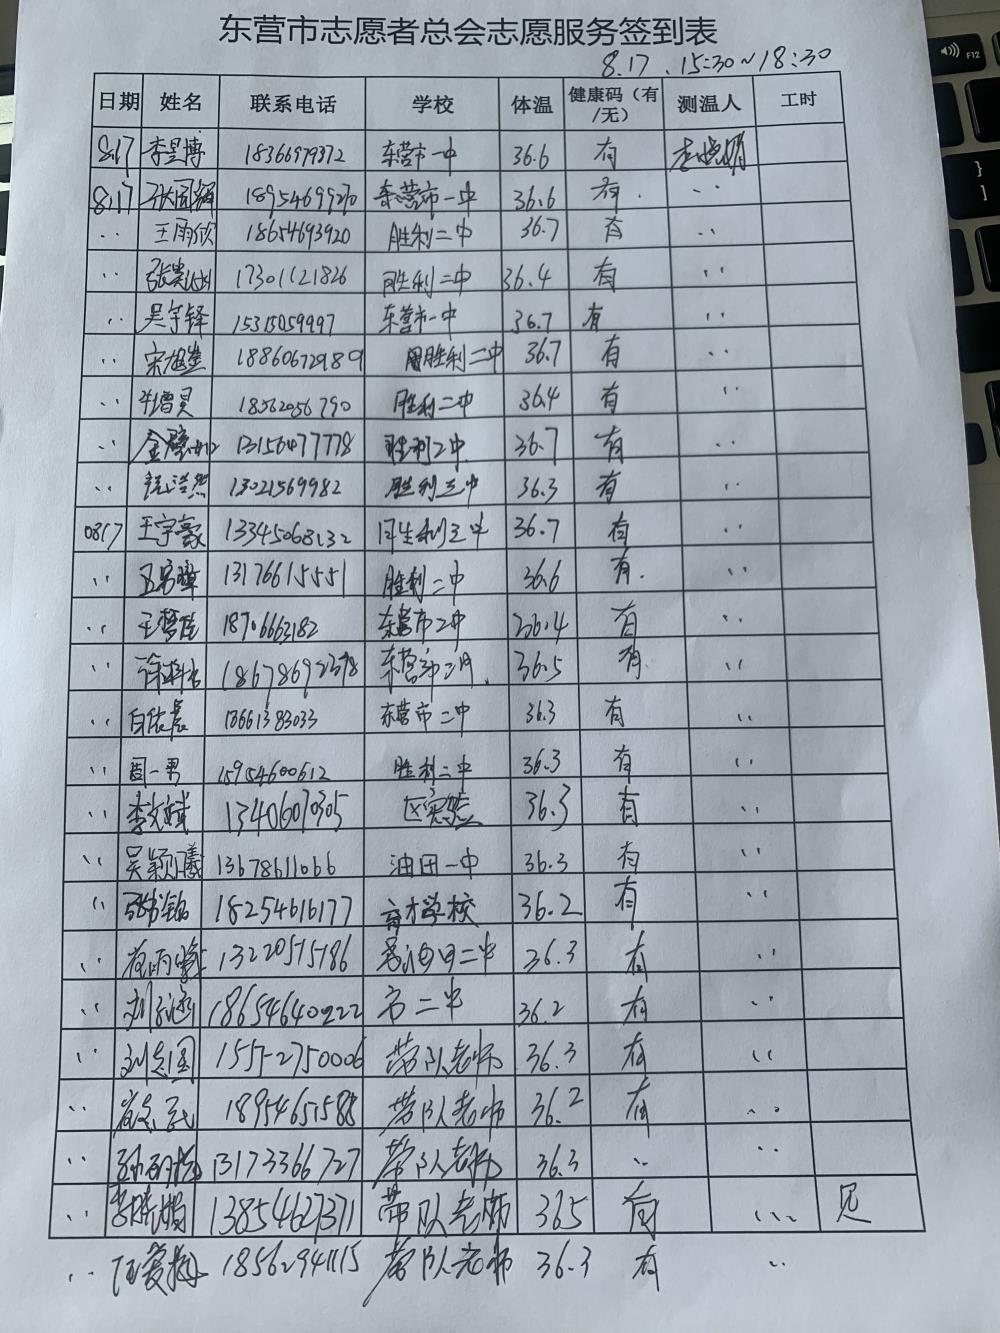 东营市志愿者总会志愿服务签到表
8.17 . 15:30~18:30
日期 姓名 联系电话 学校 体温 健康码（有/无） 测温人 工时
8.17 李昱博 18366979372 东营市一中 36.6 有
8.17 18954699270 东营市一中 36.6 有
.. 王雨欣 18654693920 胜利二中 36.7 有 ..
.. 17301121826 胜利二中 36.4 有 ..
.. 吴宇铎 15315059997 东营市一中 36.7 有 ..
.. 18860672989 胜利二中 36.7 有 ..
.. 18562056790 胜利二中 36.4 有 ..
.. 13156477778 胜利二中 36.7 有 ..
.. 13021569982 胜利三中 36.3 有 ..
0817 王宇豪 13345068132 胜利三中 36.7 有 ..
.. 13176615551 胜利二中 36.6 有. ..
.. 18706663182 东营市二中 36.4 有 ..
.. 18678692398 东营市 36.5 有 ..
.. 白依晨 18661383033 东营市二中 36.3 有 ..
.. 周一男 15954600612 胜利二中 36.3 有 ..
.. 李文斌 13406070305 区实验 36.3 有 ..
.. 吴颖曦 13678611066 油田一中 36.3 有 ..
.. 18254616177 育才学校 36.2 有 ..
.. 13220515186 二中 36.3 有 ..
.. 刘 18654640222 市二中 36.2 有 ..
.. 刘志国 15552750006 带队老师 36.3 有 ..
.. 18954651588 带队老师 36.2 有 ..
.. 13173366727 带队老师 36.3 .. ..
.. 李晓娟 13854627371 带队老师 365 有 ...
.. 18562941115 带队老师 36.3 有 ..